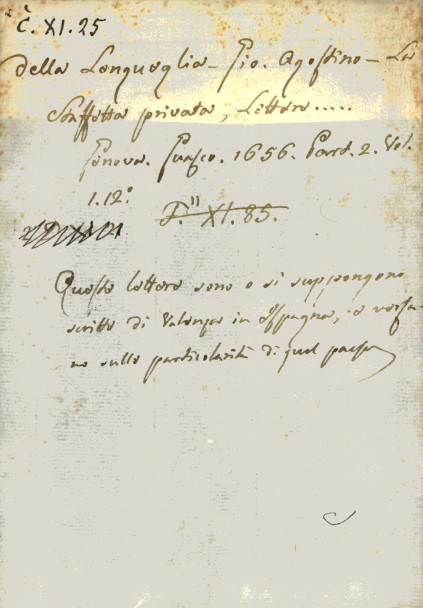 Č. XI. 25
Della Lengueglia - Gio. Agostino - La
Staffetta privata, Lettere.....
Genova. Guasco. 1656. Part. 2. Vol.
1. 12°
F." XI. 85.
Queste lettere sono o si suppongono
scritte di Valenza in Ispagna, e versa-
no sulle particolarità di quel paese